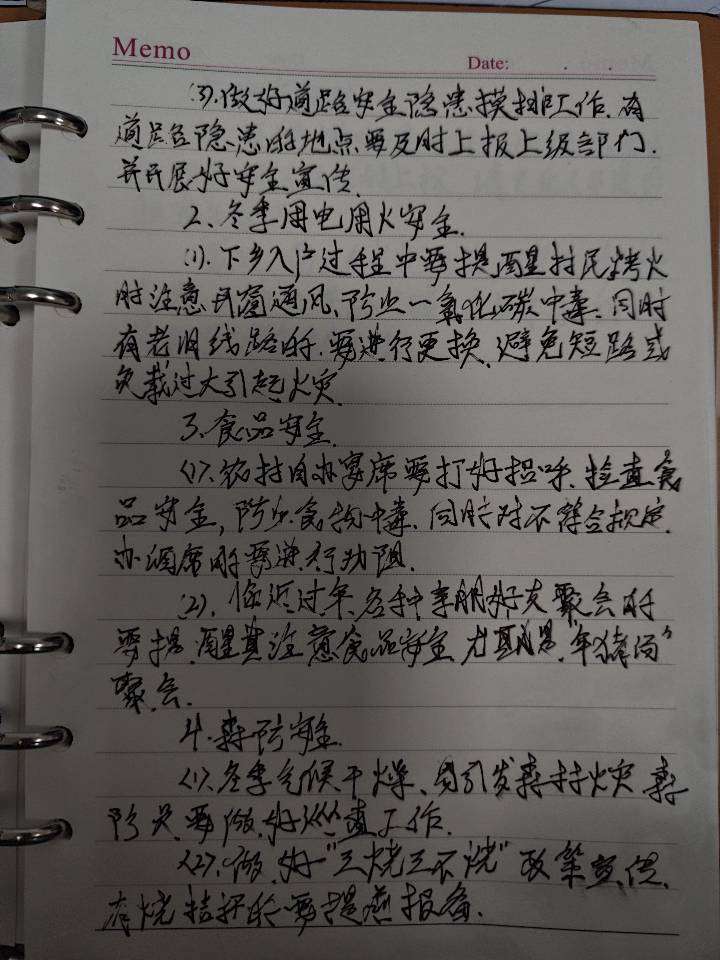 Memo
Date:
(3).做好道路安全隐患摸排工作.有
道路隐患的地点要及时上报上级部门.
并开展好安全宣传.
2.冬季用电用火安全.
(1).下乡入户过程中要提醒村民烤火
时注意开窗通风,防止一氧化碳中毒.同时
有老旧线路的.要进行更换.避免短路或
负载过大引起火灾.
3.食品安全.
(1).农村自办宴席要打好招呼.检查食
品安全,防止食物中毒.同时对不符合规定
办酒席的要进行劝阻.
(2).临近过年.各种亲朋好友聚会的
要提醒其注意食品安全.尤其是"年猪汤"
聚会.
4.森防安全.
(1).冬季气候干燥、易引发森林火灾.森
防员要做好巡查工作.
(2).做好"三烧三不烧"政策宣传.
有烧秸秆的要提前报备.